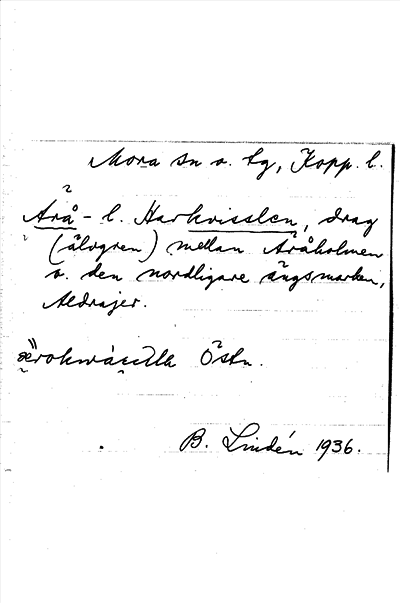 Mora sn o. tg, Kopp. l.
Arå- l. Harkvisslen, drag
(älvgren) mellan Aråholmen
o. den nordligare ängsmarken,
Aldrajer.
Östn.
B. Lindén 1936.